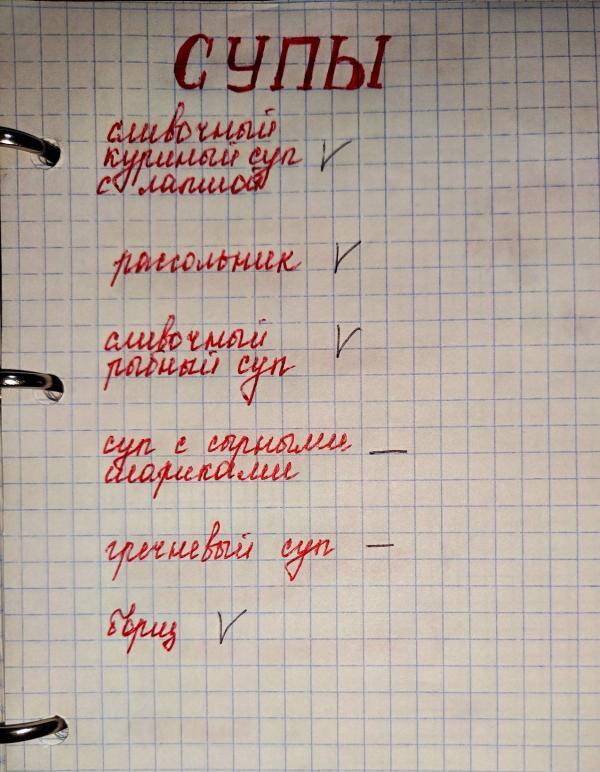 СУПЫ
сливочный
куриный суп ✓
с лапшой
рассольник ✓
сливочный ✓
рыбный суп
суп с сырными —
шариками
гречневый суп —
борщ ✓